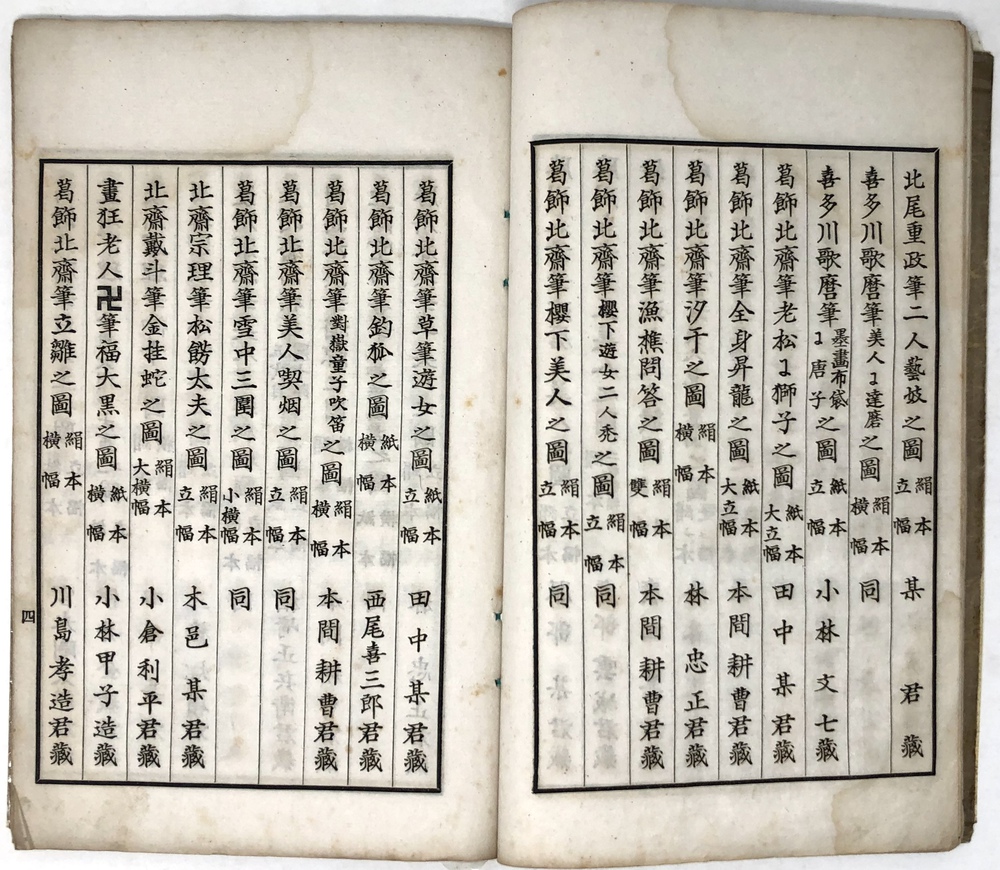 北尾重政筆二人藝妓之圖 絹本立幅 某君藏
喜多川歌麿筆美人ニ達磨之圖 絹本横幅 同
喜多川歌麿筆墨畫布袋ニ唐子之圖 紙本立幅 小林文七藏
葛飾北齋筆老松ニ獅子之圖 紙本大立幅 田中某君藏
葛飾北齋筆全身昇龍之圖 紙本大立幅 本間耕曹君藏
葛飾北齋筆汐干之圖 絹本横幅 林忠正君藏
葛飾北齋筆漁樵問答之圖 絹本雙幅 本間耕曹君藏
葛飾北齋筆櫻下遊女二人禿之圖 絹本立幅 同
葛飾北齋筆櫻下美人之圖 絹本立幅 同
葛飾北齋筆草筆遊女之圖 紙本立幅 田中某君藏
葛飾北齋筆釣狐之圖 紙本横幅 西尾喜三郎君藏
葛飾北齋筆對嶽童子吹笛之圖 絹本横幅 本間耕曹君藏
葛飾北齋筆美人喫烟之圖 絹本立幅 同
葛飾北齋筆雪中三閑之圖 絹本小横幅 同
北齋宗理筆松餝太夫之圖 絹本立幅 木邑某君藏
北齋戴斗筆金挂蛇之圖 絹本大横幅 小倉利平君藏
畫狂老人卍筆福大黒之圖 紙本横幅 小林甲子造君藏
葛飾北齋筆立雛之圖 絹本横幅 川島孝造君藏
四